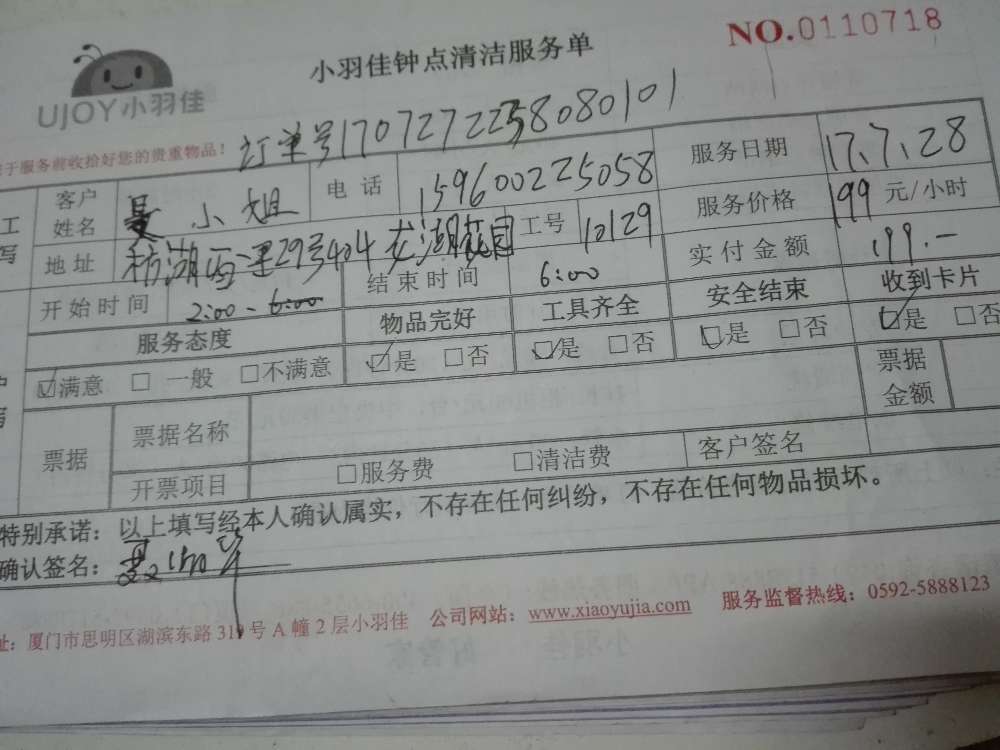 NO.0110718
小羽佳钟点清洁服务单
UJOY小羽佳
订单号17072722558080101
于服务前收拾好您的贵重物品！
客户姓名 小姐 电话 159600225058 服务日期 17.7.28
地址 湖西里29号404 龙湖花园 工号 10129 服务价格 199 元/小时
开始时间 2:00-6:00 结束时间 6:00 实付金额 199.-
服务态度 物品完好 工具齐全 安全结束 收到卡片
☑满意 □一般 □不满意 ☑是 □否 ☑是 □否 ☑是 □否 ☑是 □否
票据 票据名称 票据金额
开票项目 □服务费 □清洁费 客户签名
特别承诺：以上填写经本人确认属实，不存在任何纠纷，不存在任何物品损坏。
确认签名：
址：厦门市思明区湖滨东路319号A幢2层小羽佳 公司网站：www.xiaoyujia.com 服务监督热线：0592-5888123